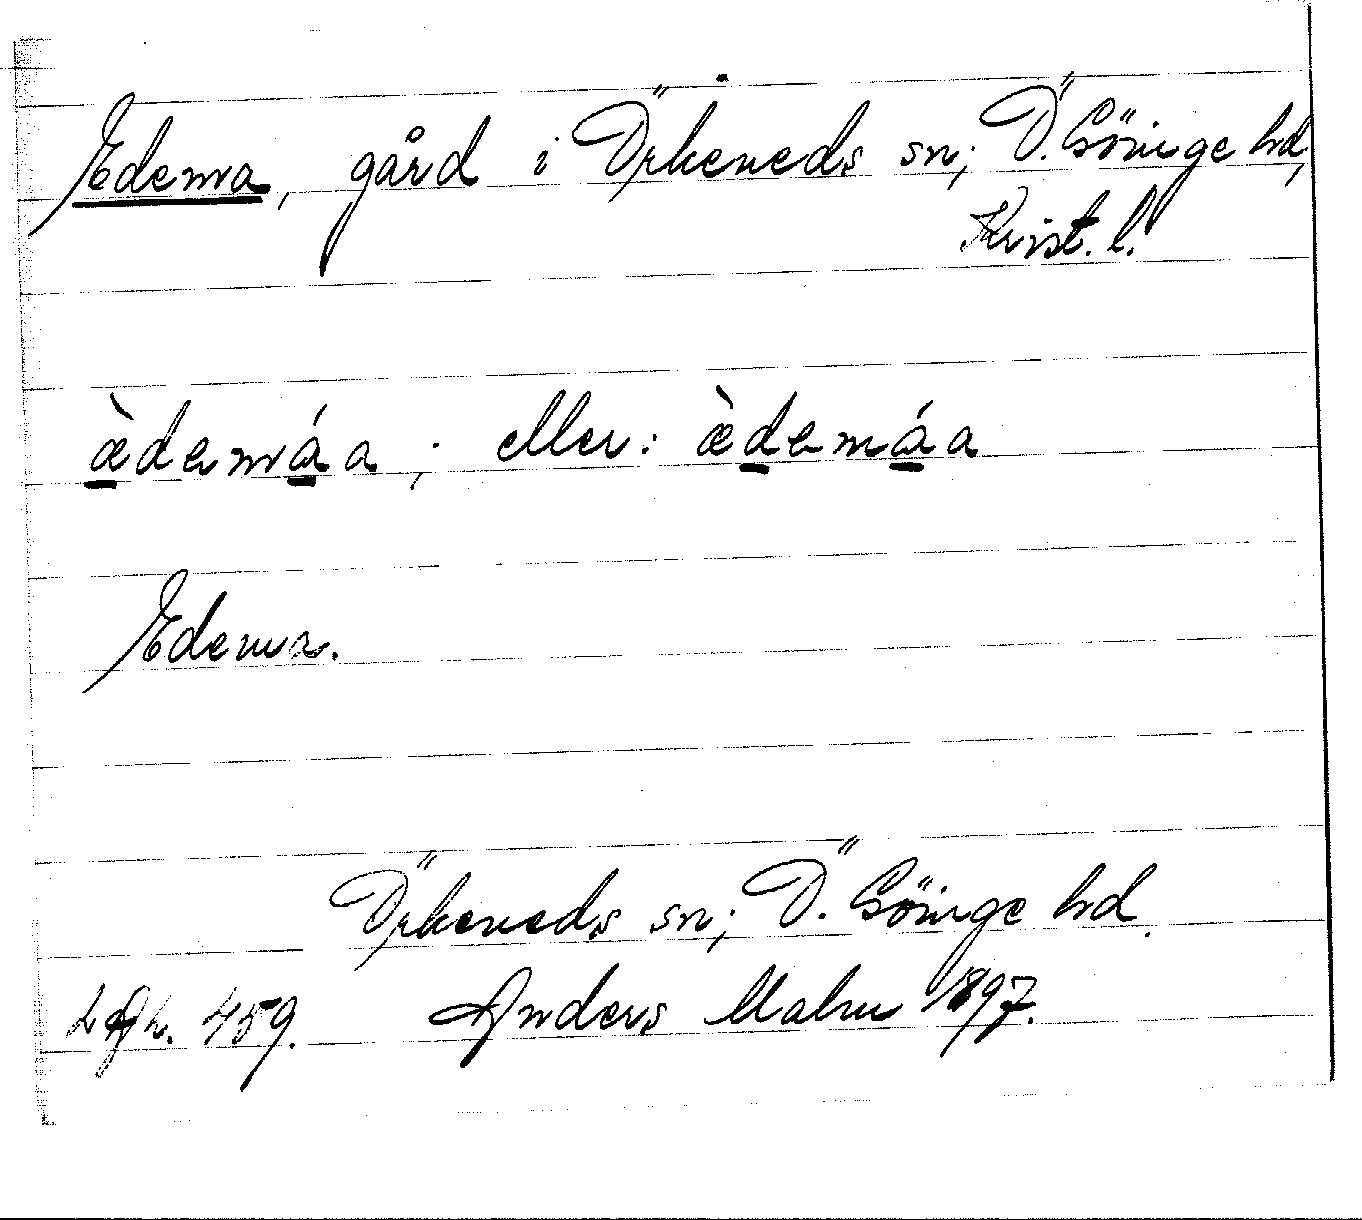 Edema, gård i Örkeneds sn; Ö. Göinge hd,
Krist. l.
æ̀demáa; eller: æ̀demáa
Edema.
Örkeneds sn; Ö. Göinge hd.
459. Anders Malm 1897.